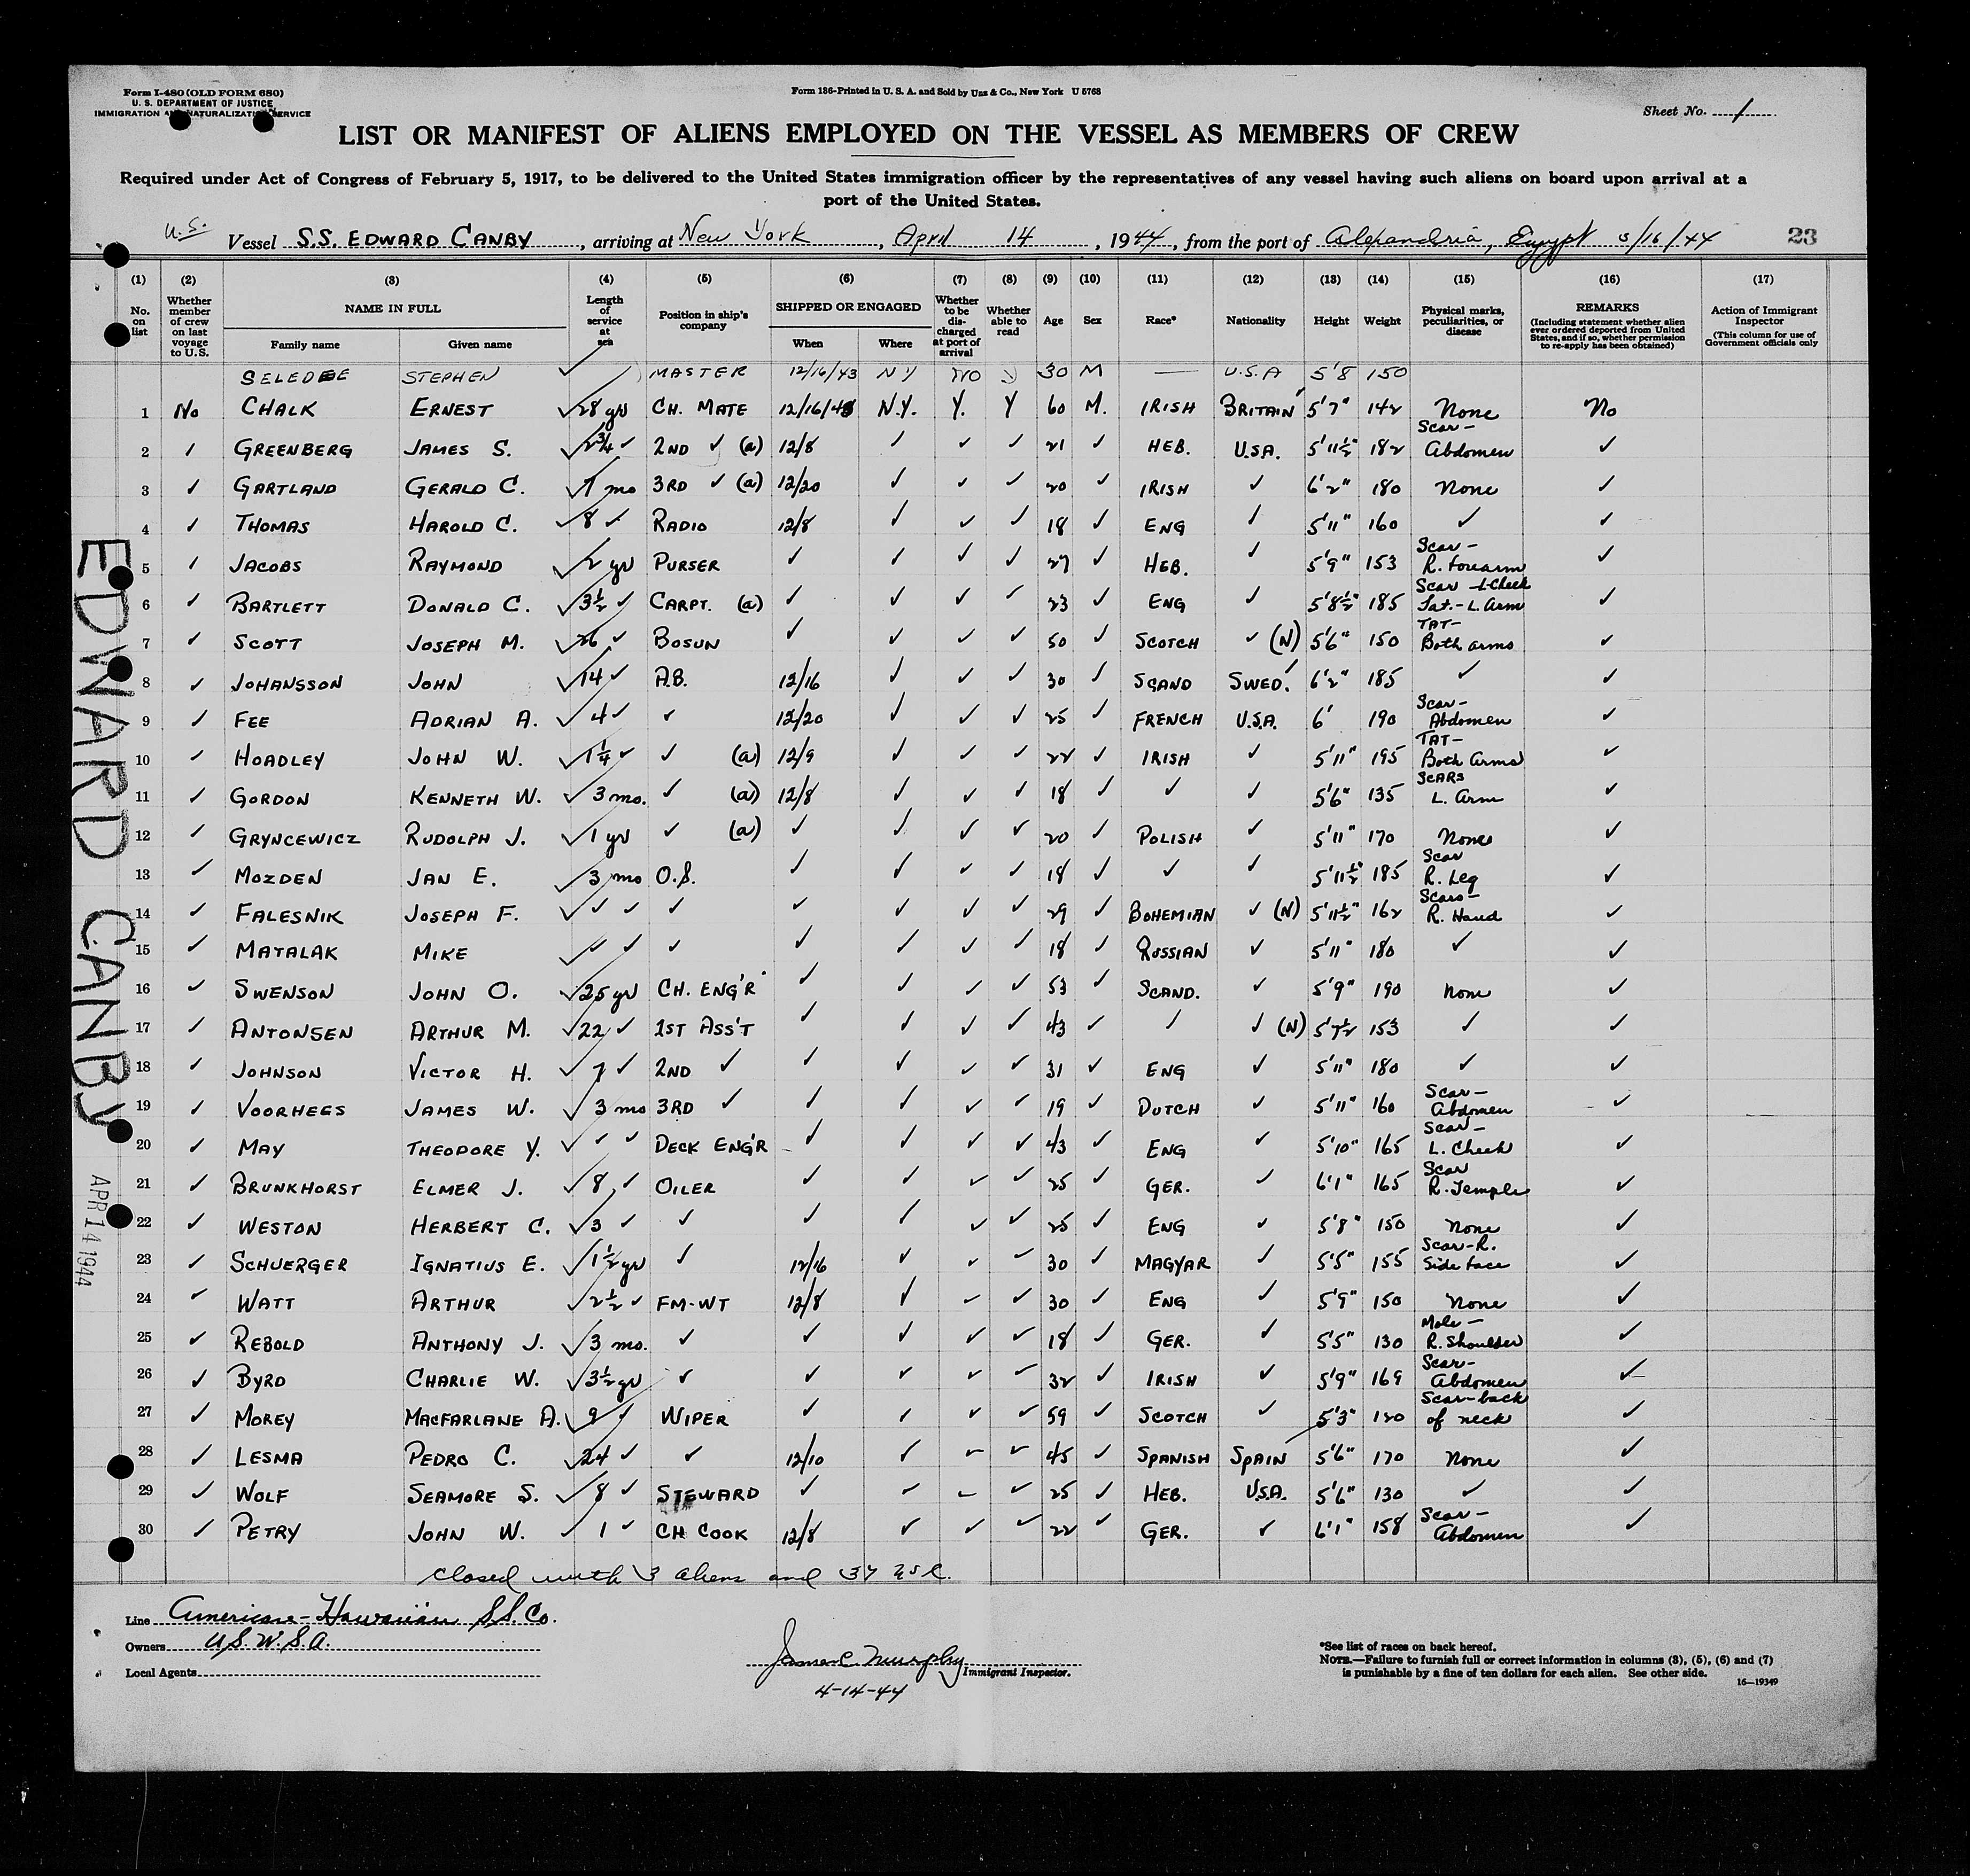 Form I-480 (OLD FORM 680)
U. S. DEPARTMENT OF JUSTICE
IMMIGRATION AND NATURALIZATION SERVICE
Form 136-Printed in U. S. A. and Sold by Unz & Co., New York U 5768
Sheet No. 1
LIST OR MANIFEST OF ALIENS EMPLOYED ON THE VESSEL AS MEMBERS OF CREW
Required under Act of Congress of February 5, 1917, to be delivered to the United States immigration officer by the representatives of any vessel having such aliens on board upon arrival at a
port of the United States.
U.S. Vessel S.S. EDWARD CANBY, arriving at New York, April 14, 1944, from the port of Alexandria, Egypt 3/16/44 23
(1) (2) (3) (4) (5) (6) (7) (8) (9) (10) (11) (12) (13) (14) (15) (16) (17)
No. on list
Whether member of crew on last voyage to U.S.
NAME IN FULL
Family name Given name
Length of service at sea
Position in ship's company
SHIPPED OR ENGAGED
When Where
Whether to be discharged at port of arrival
Whether able to read
Age Sex Race* Nationality Height Weight
Physical marks, peculiarities, or disease
REMARKS
(Including statement whether alien ever ordered deported from United States, and if so, whether permission to re-apply has been obtained)
Action of Immigrant Inspector
(This column for use of Government officials only
STEPHEN ✓ MASTER 12/16/43 NY NO 30 M — U.S.A 5'8 150
1 No CHALK ERNEST ✓ 28 yrs CH. MATE 12/16/43 N.Y. Y. Y 60 M. IRISH BRITAIN 5'7" 142 None No
2 ✓ GREENBERG JAMES S. ✓ 2¾ ✓ 2ND ✓ (a) 12/8 ✓ ✓ ✓ 21 ✓ HEB. U.S.A. 5'11½" 182 Scar - Abdomen ✓
3 ✓ GARTLAND GERALD C. ✓ 7 mo 3RD ✓ (a) 12/20 ✓ ✓ ✓ 20 ✓ IRISH ✓ 6'2" 180 None ✓
4 ✓ THOMAS HAROLD C. ✓ 8 ✓ RADIO 12/8 ✓ ✓ ✓ 18 ✓ ENG ✓ 5'11" 160 ✓ ✓
5 ✓ JACOBS RAYMOND ✓ 2 yr PURSER ✓ ✓ ✓ ✓ 27 ✓ HEB. ✓ 5'9" 153 Scar - R. Forearm ✓
6 ✓ BARTLETT DONALD C. ✓ 3½ ✓ CARPT. (a) ✓ ✓ ✓ ✓ 23 ✓ ENG ✓ 5'8½" 185 Scar - L. Cheek Tat. - L. Arm ✓
7 ✓ SCOTT JOSEPH M. ✓ 26 ✓ BOSUN ✓ ✓ ✓ ✓ 50 ✓ SCOTCH ✓ (N) 5'6" 150 TAT - Both arms ✓
8 ✓ JOHANSSON JOHN ✓ 14 ✓ A.B. 12/16 ✓ ✓ ✓ 30 ✓ SCAND SWED. 6'2" 185 ✓ ✓
9 ✓ FEE ADRIAN A. ✓ 4 ✓ ✓ 12/20 ✓ ✓ ✓ 25 ✓ FRENCH U.S.A. 6' 190 Scar - Abdomen ✓
10 ✓ HOADLEY JOHN W. ✓ 1¼ ✓ ✓ (a) 12/9 ✓ ✓ ✓ 22 ✓ IRISH ✓ 5'11" 195 TAT - Both Arms ✓
11 ✓ GORDON KENNETH W. ✓ 3 mo. ✓ (a) 12/8 ✓ ✓ ✓ 18 ✓ ✓ ✓ 5'6" 135 SCARS L. Arm ✓
12 ✓ GRYNCEWICZ RUDOLPH J. ✓ 1 yr ✓ (a) ✓ ✓ ✓ ✓ 20 ✓ POLISH ✓ 5'11" 170 None ✓
13 ✓ MOZDEN JAN E. ✓ 3 mo O.S. ✓ ✓ ✓ ✓ 18 ✓ ✓ ✓ 5'11½" 185 Scar R. Leg ✓
14 ✓ FALESNIK JOSEPH F. ✓ ✓ ✓ ✓ ✓ ✓ ✓ ✓ 29 ✓ BOHEMIAN ✓ (N) 5'11½" 162 Scars - R. Hand ✓
15 ✓ MATALAK MIKE ✓ ✓ ✓ ✓ ✓ ✓ ✓ 18 ✓ RUSSIAN ✓ 5'11" 180 ✓ ✓
16 ✓ SWENSON JOHN O. ✓ 25 yr CH. ENG'R ✓ ✓ ✓ ✓ 53 ✓ SCAND. ✓ 5'9" 190 None ✓
17 ✓ ANTONSEN ARTHUR M. ✓ 22 ✓ 1ST ASS'T ✓ ✓ ✓ ✓ 43 ✓ ✓ ✓ (N) 5'7½ 153 ✓ ✓
18 ✓ JOHNSON VICTOR H. ✓ 7 ✓ 2ND ✓ ✓ ✓ ✓ ✓ 31 ✓ ENG ✓ 5'11" 180 ✓ ✓
19 ✓ VOORHEES JAMES W. ✓ 3 mo 3RD ✓ ✓ ✓ ✓ ✓ 19 ✓ DUTCH ✓ 5'11" 160 Scar - Abdomen ✓
20 ✓ MAY THEODORE Y. ✓ ✓ ✓ DECK ENG'R ✓ ✓ ✓ ✓ 43 ✓ ENG ✓ 5'10" 165 Scar - L. Cheek ✓
21 ✓ BRUNKHORST ELMER J. ✓ 8 ✓ OILER ✓ ✓ ✓ ✓ 25 ✓ GER. ✓ 6'1" 165 Scar R. Temple ✓
22 ✓ WESTON HERBERT C. ✓ 3 ✓ ✓ ✓ ✓ ✓ ✓ 25 ✓ ENG ✓ 5'8" 150 None ✓
23 ✓ SCHUERGER IGNATIUS E. ✓ 1½ yr ✓ 12/16 ✓ ✓ ✓ 30 ✓ MAGYAR ✓ 5'5" 155 Scar - R. Side face ✓
24 ✓ WATT ARTHUR ✓ 2½ ✓ FM-WT 12/8 ✓ ✓ ✓ 30 ✓ ENG ✓ 5'9" 150 None ✓
25 ✓ REBOLD ANTHONY J. ✓ 3 mo. ✓ ✓ ✓ ✓ ✓ 18 ✓ GER. ✓ 5'5" 130 Mole - R. Shoulder ✓
26 ✓ BYRD CHARLIE W. ✓ 3½ yr ✓ ✓ ✓ ✓ ✓ 32 ✓ IRISH ✓ 5'9" 169 Scar - Abdomen ✓
27 ✓ MOREY MACFARLANE A. ✓ 9 ✓ WIPER ✓ ✓ ✓ ✓ 59 ✓ SCOTCH ✓ 5'3" 120 Scar - back of neck ✓
28 ✓ LESMA PEDRO C. ✓ 24 ✓ ✓ 12/10 ✓ ✓ ✓ 45 ✓ SPANISH SPAIN 5'6" 170 None ✓
29 ✓ WOLF SEAMORE S. ✓ 8 ✓ STEWARD ✓ ✓ ✓ ✓ 25 ✓ HEB. U.S.A. 5'6" 130 ✓ ✓
30 ✓ PETRY JOHN W. ✓ 1 ✓ CH COOK 12/8 ✓ ✓ ✓ 22 ✓ GER. ✓ 6'1" 158 Scar - Abdomen ✓
closed with 3 aliens and 37
Line American-Hawaiian S.S. Co.
Owners U.S.W.S.A.
Local Agents
James C. Murphy Immigrant Inspector.
4-14-44
*See list of races on back hereof.
NOTE.—Failure to furnish full or correct information in columns (3), (5), (6) and (7)
is punishable by a fine of ten dollars for each alien. See other side.
16—19349
EDWARD CANBY
APR 14 1944